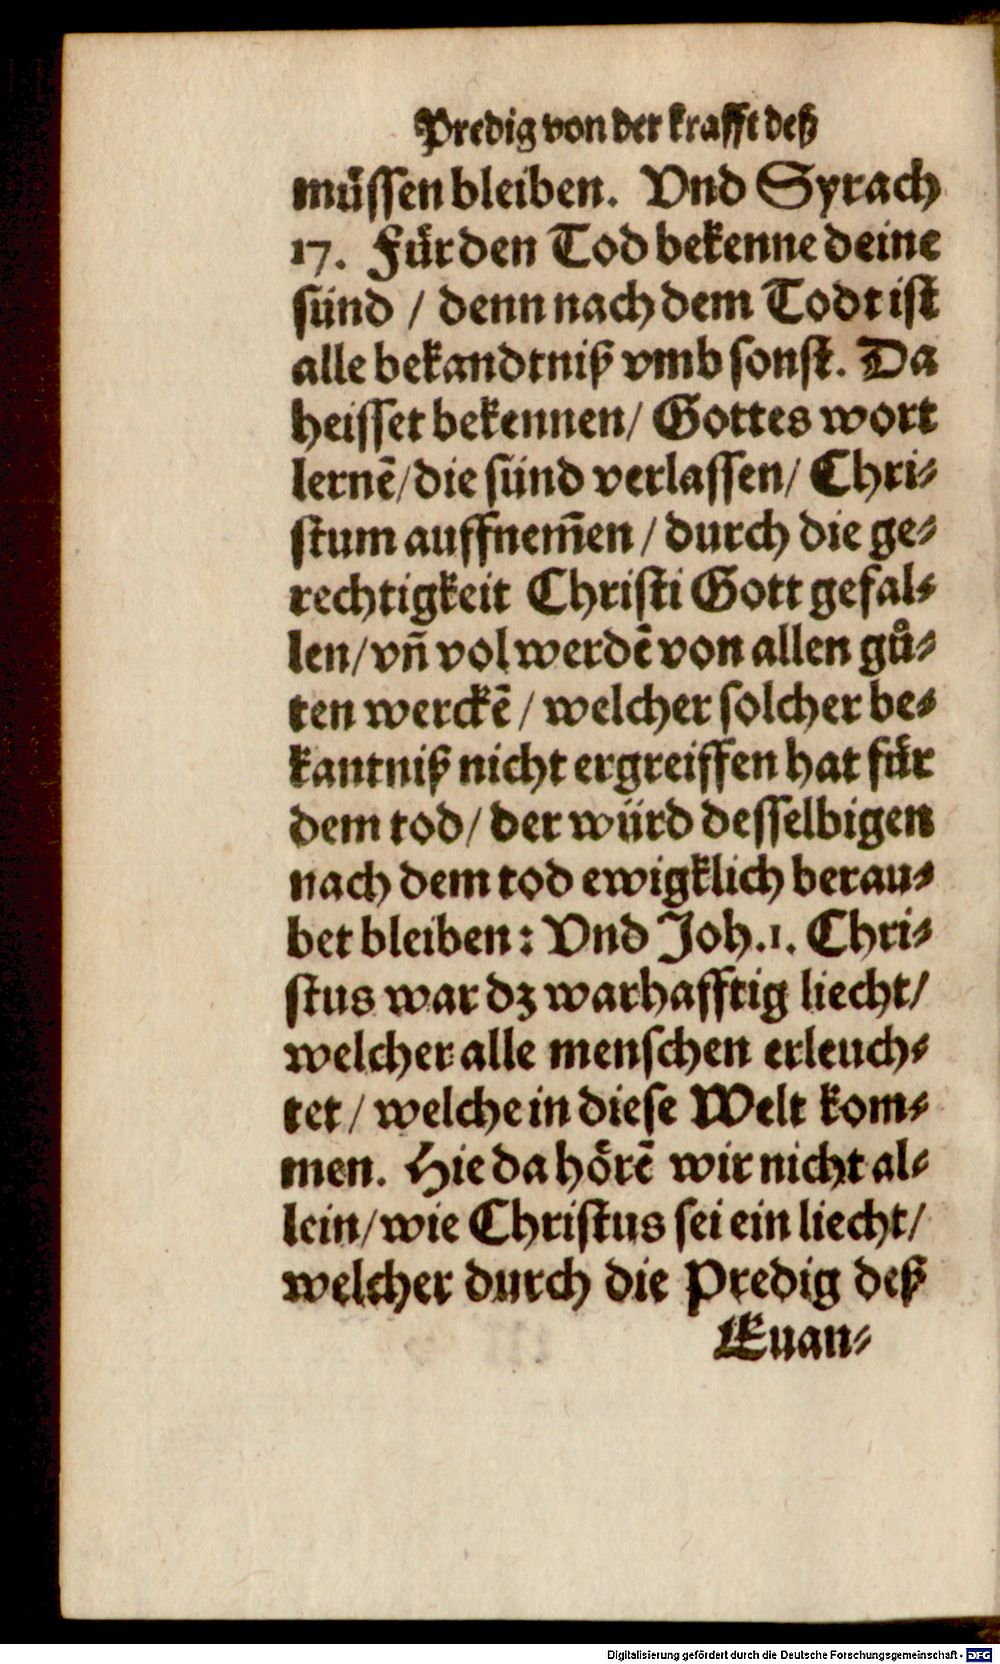 Predig von der krafft deß
müssen bleiben. Vnd Syrach
17. Für den Tod bekenne deine
sünd / denn nach dem Todt ist
alle bekandtniß vmb sonst. Da
heisset bekennen / Gottes wort
lernē / die sünd verlassen / Chri⸗
stum auffnem̄en / durch die ge⸗
rechtigkeit Christi Gott gefal⸗
len / vn̄ vol werdē von allen gů⸗
ten werckē / welcher solcher be⸗
kantniß nicht ergreiffen hat für
dem tod / der würd desselbigen
nach dem tod ewigklich berau⸗
bet bleiben: Vnd Joh. 1. Chri⸗
stus war dz warhafftig liecht /
welcher alle menschen erleuch⸗
tet / welche in diese Welt kom⸗
men. Hie da hörē wir nicht al⸗
lein / wie Christus sei ein liecht /
welcher durch die Predig deß
Euan⸗
Digitalisierung gefördert durch die Deutsche Forschungsgemeinschaft - DFG